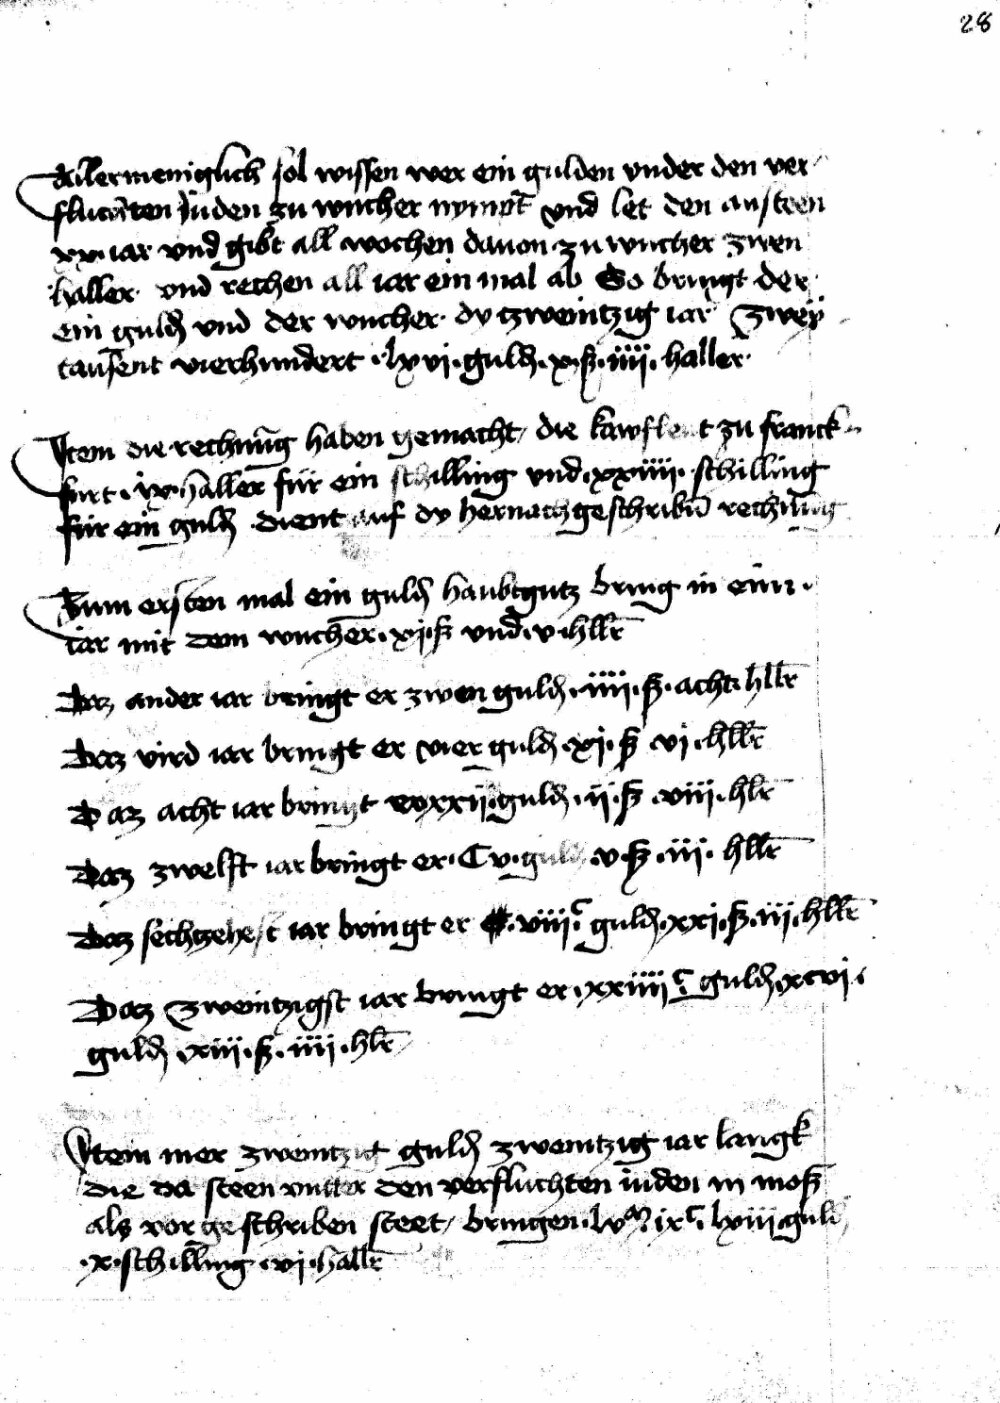 28
Allermeniglich sol wissen wer ein gulden vnder den ver-
fluchten Juden zu wucher nympt vnd let den ansteen
xx iar vnd gibt all wochen dauon zu wucher zwen
haller vnd rechen all iar ein mal ab So bringt der
ein guld vnd der wucher dy tzweintzig iar zwey
tausent vierhundert · lxvi · guld · x · ß · iiii · haller
Item die rechnung haben gemacht die kawfleut zu franck
furt · ix · haller für ein schilling vnd · xxiiii · schilling
für ein guld dient auf dy hernachgeschribn rechnung
Zum ersten mal ein guld haubtgutz bring in eim
iar mit dem wucher · xj · ß vnd · v · hllr
Daz ander iar bringt er zwen guld · iiii · ß · acht · hllr
Daz vird iar bringt er vier guld · xj · ß · vj · hllr
Daz acht iar bringt xxij · guld · ij · ß · viij · hlr
Daz zwelft iar bringt er · C v · guld · v · ß · iij · hllr
Daz sechzehest iar bringt er · viiiᶜ guld · xxj · ß · iij · hllr
Daz zweintzigst iar bringt er · xxiiiiᶜ guld · xcvi ·
guld · xiij · ß · iiij · hlr
Item mer zweintzig guld zweintzig iar langk
die da steen vntter den verfluchten iuden in moß
als vor geschriben steet / bringen · lvᴹ ixᶜ · lxiii guld
· x · schilling · vj · hallr